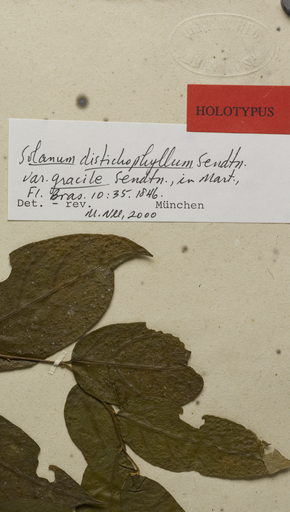 HOLOTYPUS
Solanum distichophyllum Sendtn.
var. gracile Sendtn., in Mart.,
Fl. Bras. 10:35. 1846.
Det. - rev. München
M. Nee, 2000